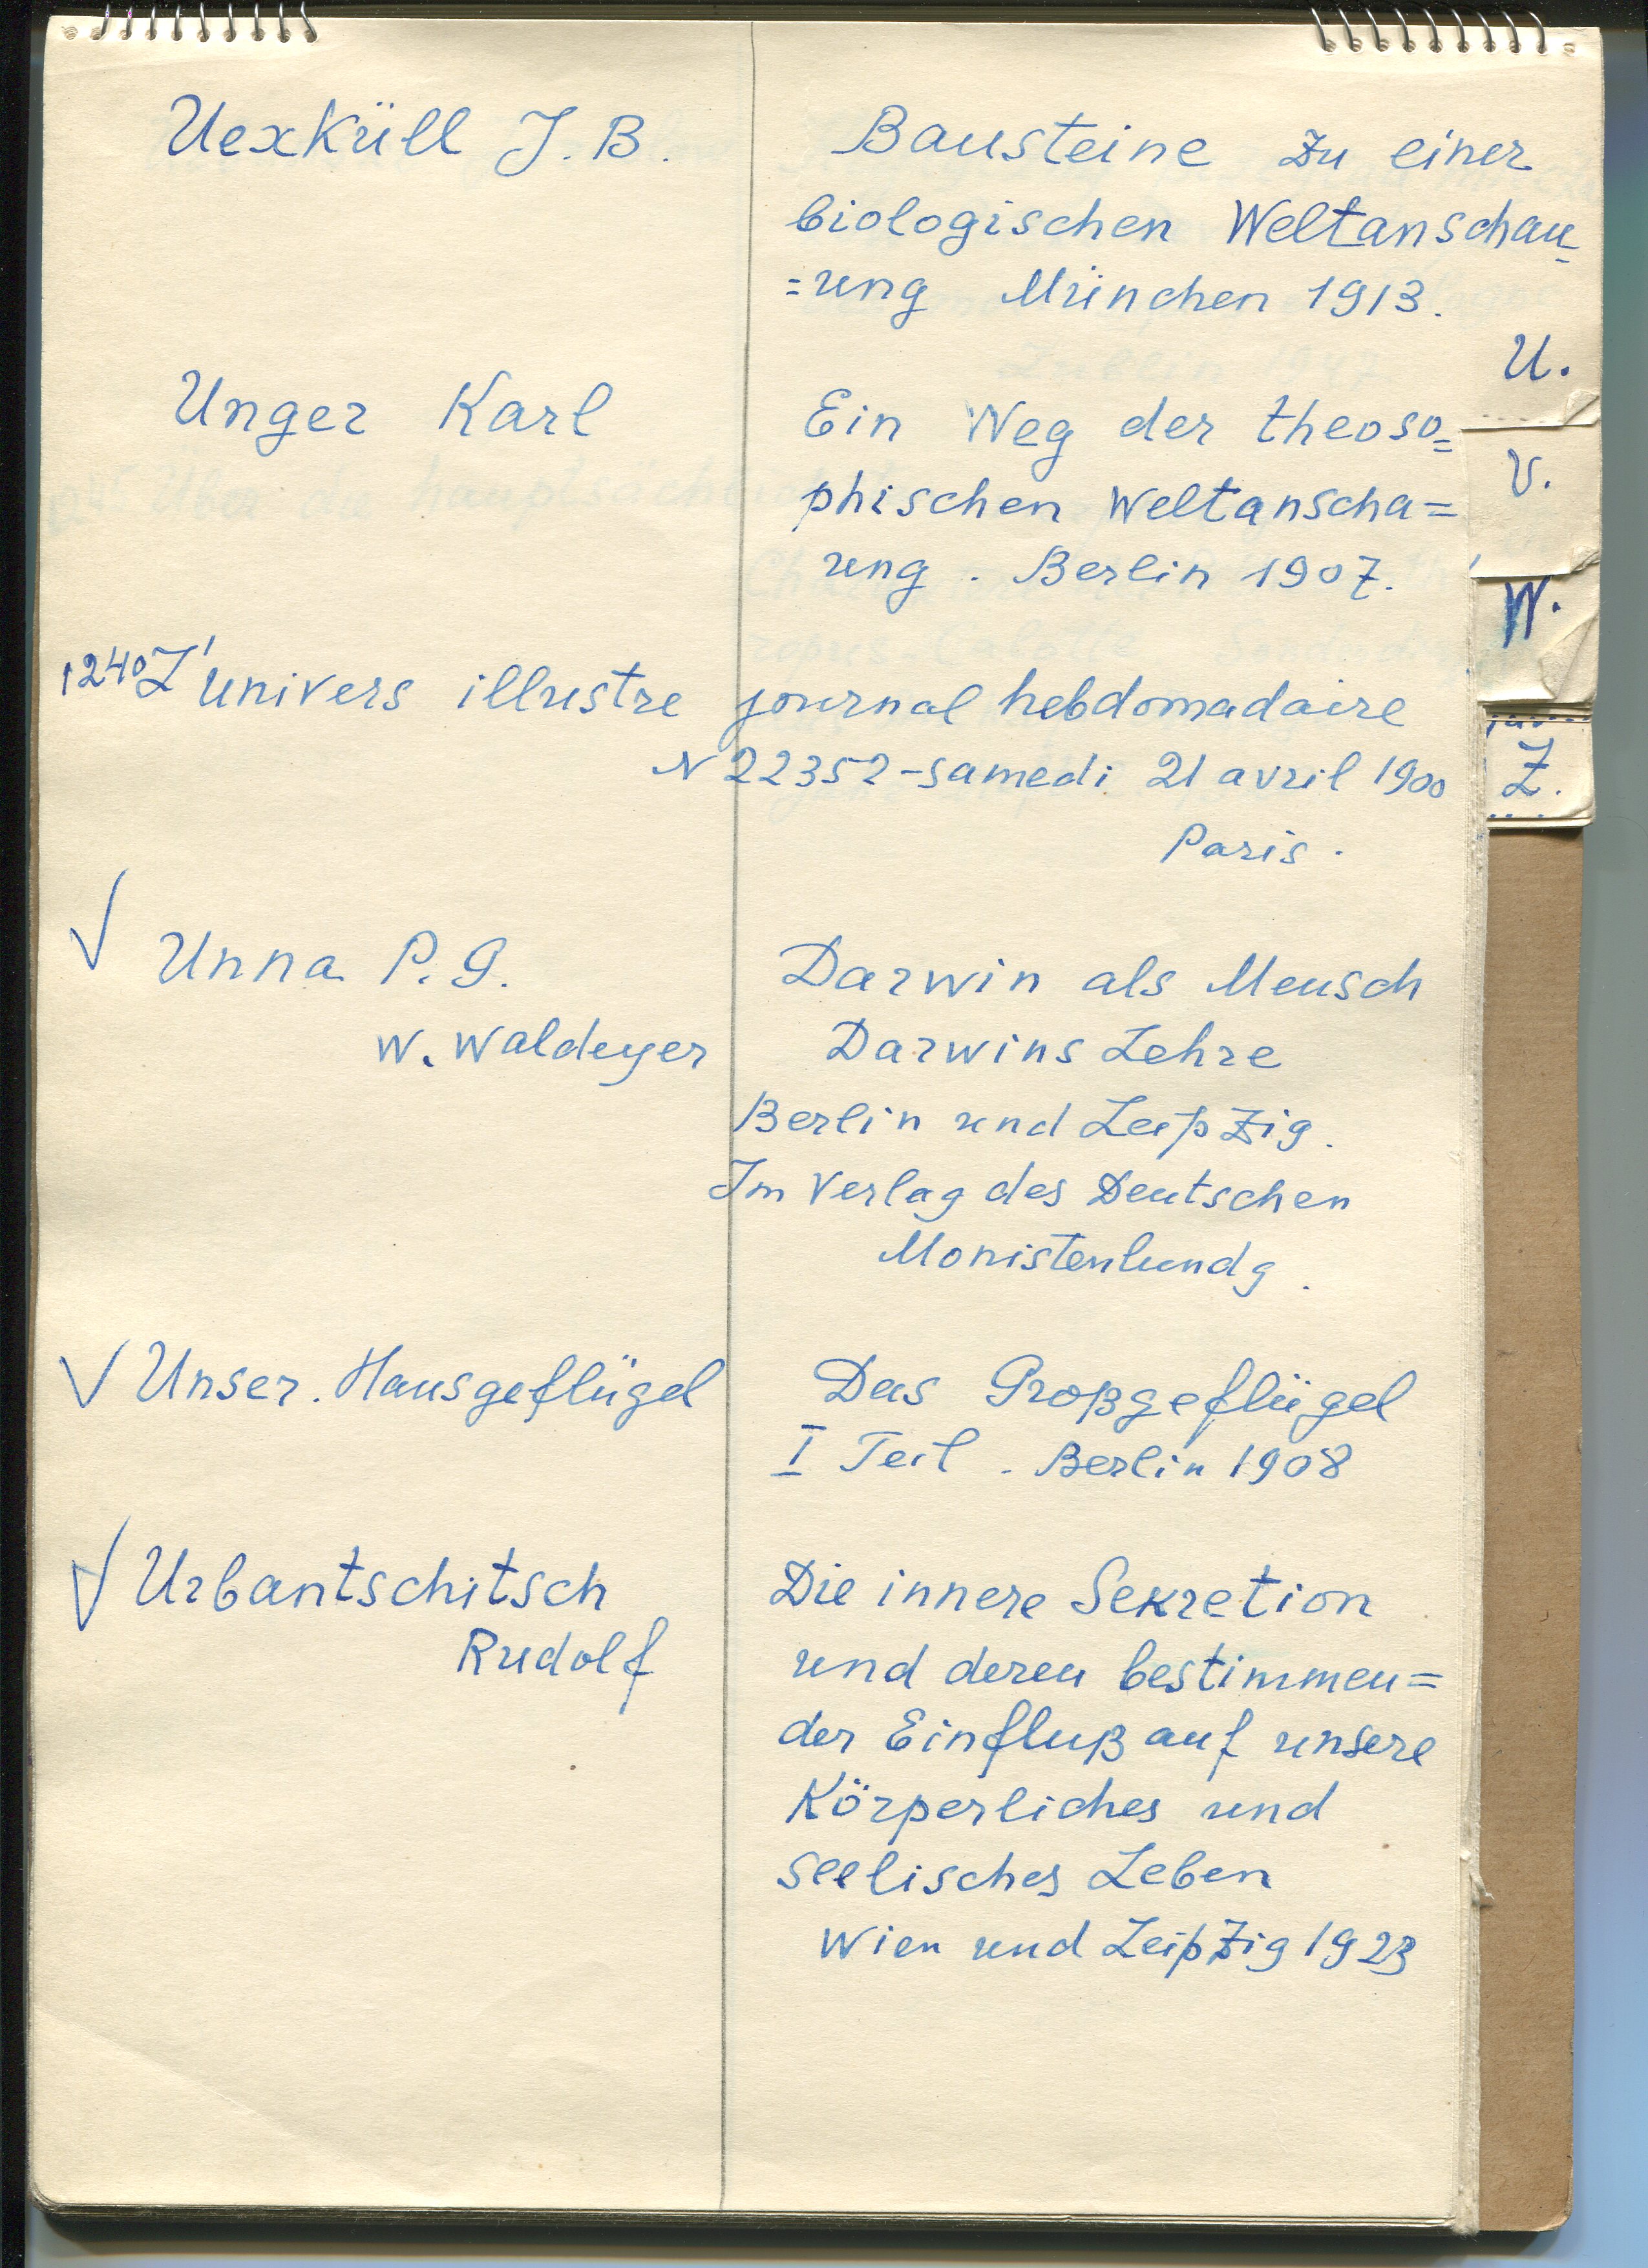 Uexküll J. B.
Bausteine zu einer
biologischen Weltanschau-
=ung München 1913.
U.
Unger Karl
Ein Weg der theoso=
phischen Weltanscha=
ung. Berlin 1907.
V.
W.
1240 L'univers illustre journal hebdomadaire
N 22352 - samedi 21 avril 1900
Paris.
Z.
√ Unna P. G.
W. Waldeyer
Darwin als Mensch
Darwins Lehre
Berlin und Leipzig.
Im Verlag des Deutschen
√ Unser. Hausgeflügel
Das Großgeflügel
I Teil. Berlin 1908
√ Urbantschitsch
Rudolf
Die innere Sekretion
und deren bestimmen=
der Einfluß auf unsere
Körperliches und
seelisches Leben
Wien und Leipzig 1923